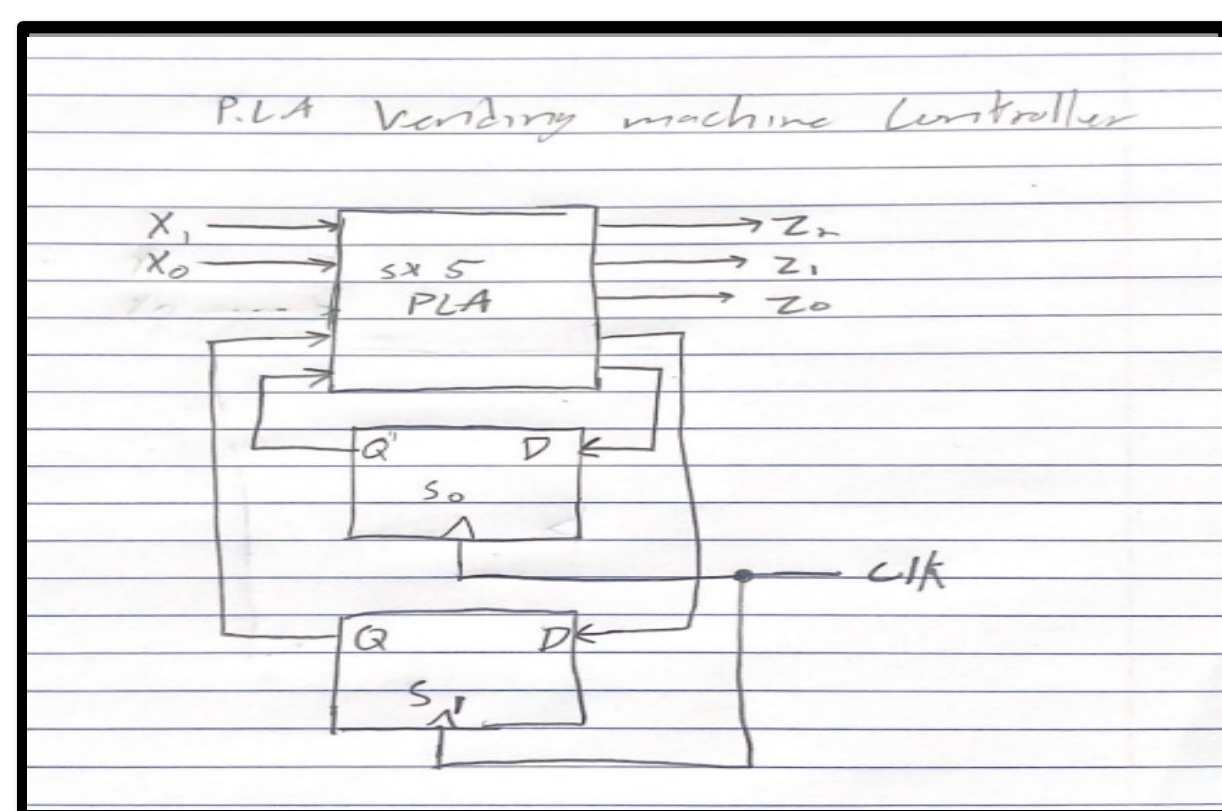 P.L.A Vending machine Controller
X₁
Z₂
X₀
5x5
Z₁
PLA
Z₀
Q
D
S₀
clk
Q
D
S₁